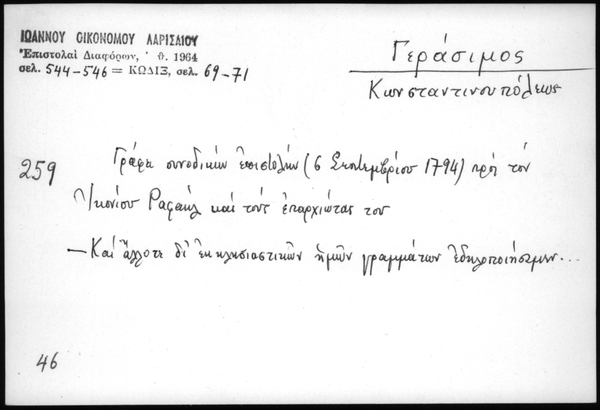 ΙΩΑΝΝΟΥ ΟΙΚΟΝΟΜΟΥ ΛΑΡΙΣΑΙΟΥ
Ἐπιστολαὶ Διαφόρων, ʹ Ἀθ. 1964
σελ. 544-546 = ΚΩΔΙΞ, σελ. 69-71
Γεράσιμος
Κωνσταντινουπόλεως
259
Γράφει συνοδικὴν ἐπιστολὴν (6 Σεπτεμβρίου 1794) πρὸς τὸν
Ἰκονίου Ραφαὴλ καὶ τοὺς ἐπαρχιώτας του
— Καὶ ἄλλοτε δι' ἐκκλησιαστικῶν ἡμῶν γραμμάτων ἐδηλοποιήσαμεν...
46